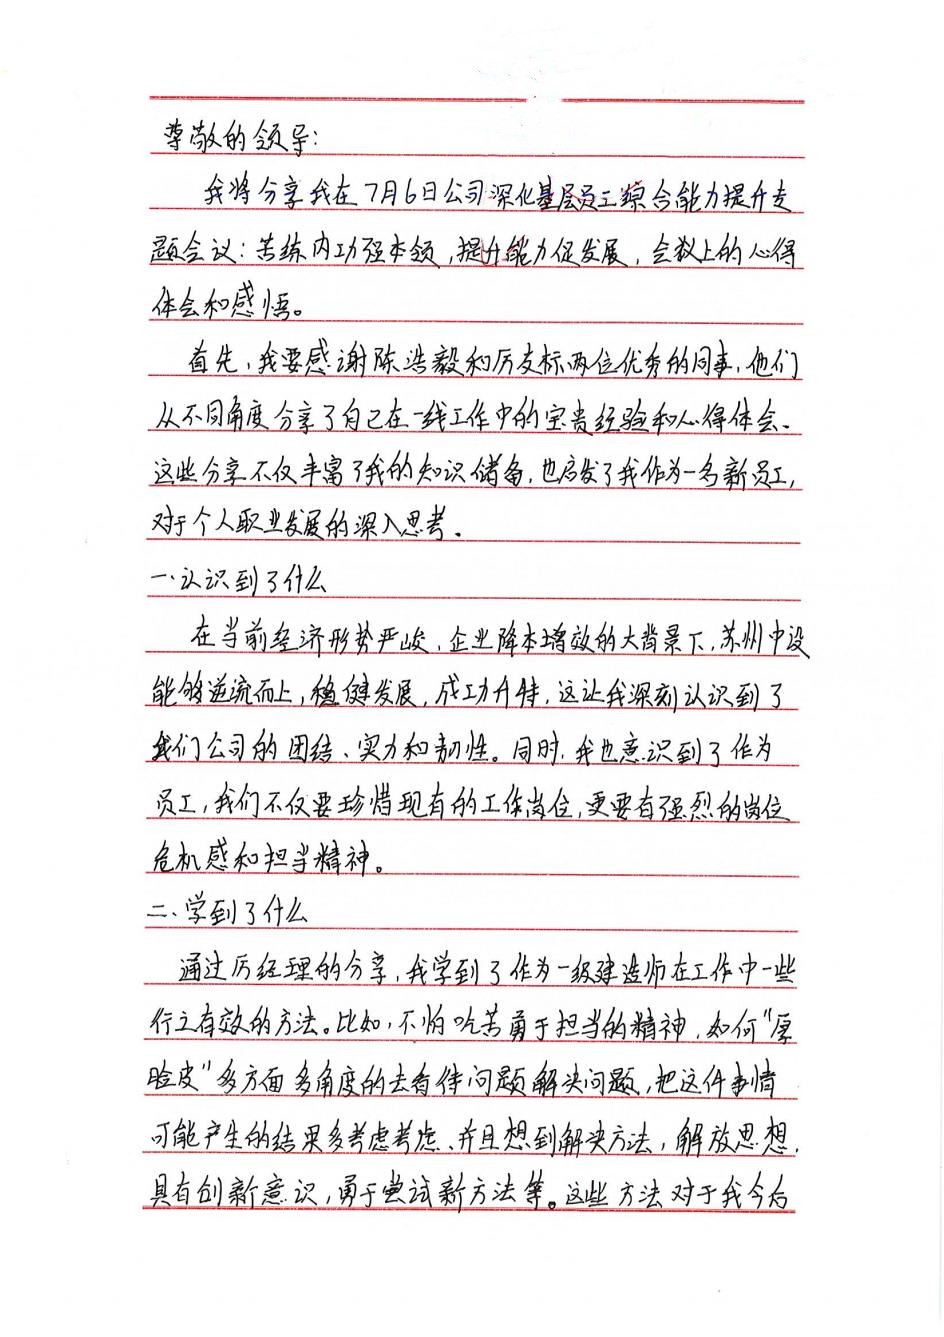 尊敬的领导:
我将分享我在7月6日公司深化基层员工综合能力提升专
题会议:苦练内功强本领,提升能力促发展,会议上的心得
体会和感悟。
首先,我要感谢陈浩毅和厉友标两位优秀的同事,他们
从不同角度分享了自己在一线工作中的宝贵经验和心得体会、
这些分享不仅丰富了我的知识储备,也启发了我作为一名新员工,
对于个人职业发展的深入思考.
一.认识到了什么
在当前经济形势严峻,企业降本增效的大背景下,苏州中设
能够逆流而上,稳健发展,成功升特,这让我深刻认识到了
我们公司的团结、实力和韧性。同时,我也意识到了作为
员工,我们不仅要珍惜现有的工作岗位,更要有强烈的岗位
危机感和担当精神。
二、学到了什么
通过厉经理的分享,我学到了作为一级建造师在工作中一些
行之有效的方法。比如,不怕吃苦勇于担当的精神,如何“厚
脸皮”多方面多角度的去看待问题解决问题,把这件事情
可能产生的结果多考虑考虑、并且想到解决方法,解放思想,
具有创新意识,勇于尝试新方法等。这些方法对于我今后